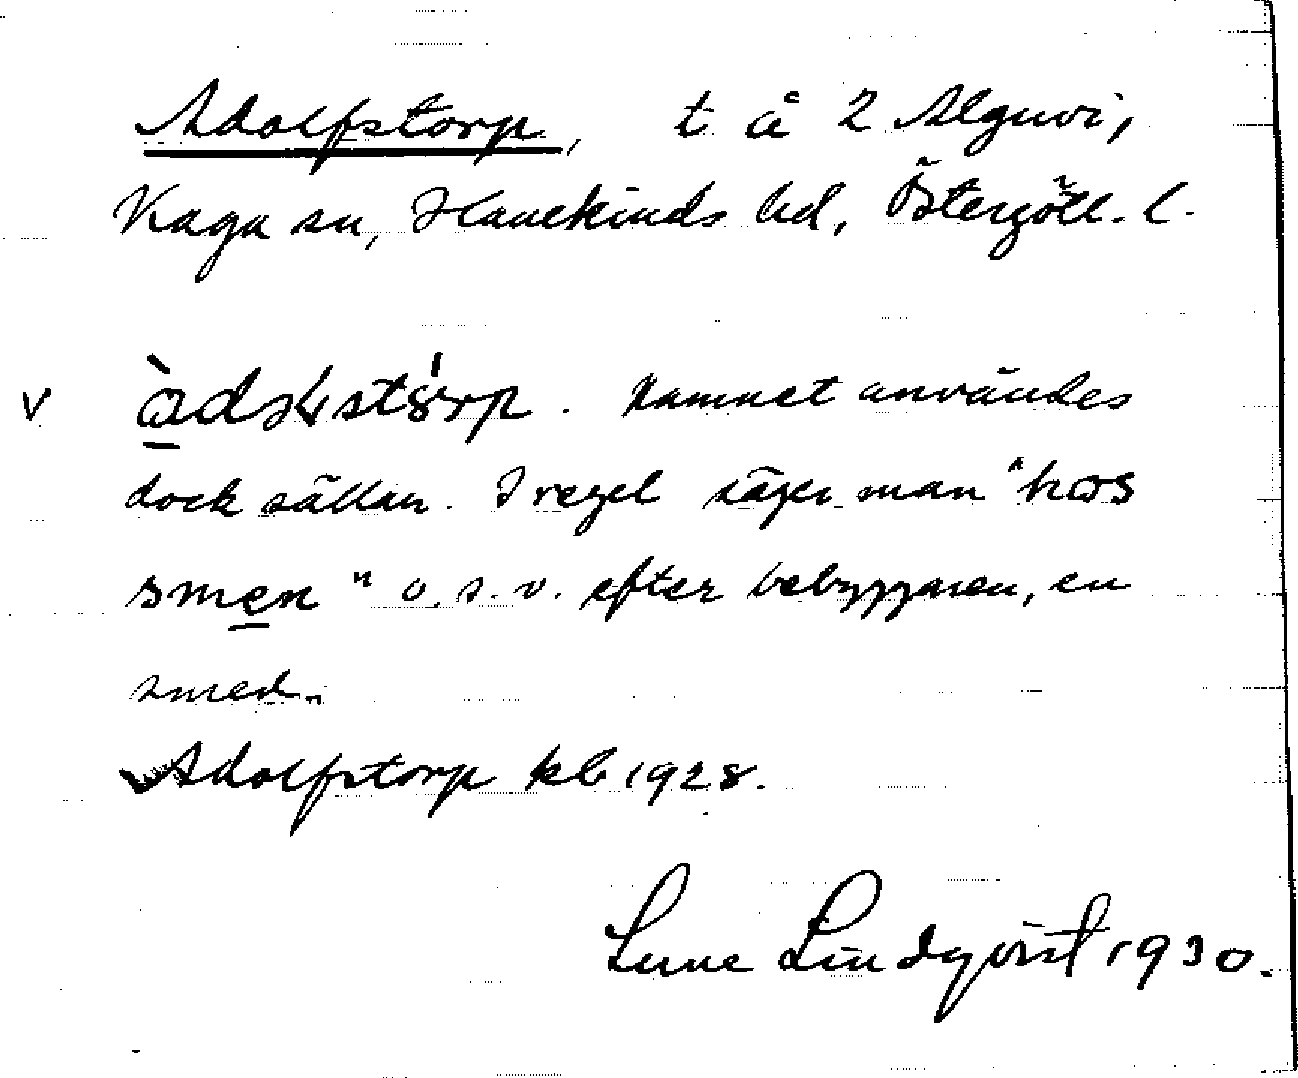 Adolfstorp, t å 2 Alguvi,
Kaga sn, Hanekinds hd, Östergötl. l.
v àdɷlstǿrp. Namnet användes
dock sällan. I regel säger man "hos
smen" o. s. v. efter bebyggaren, en
smed.
Adolfstorp kb 1928.
Sune Lindqvist 1930.